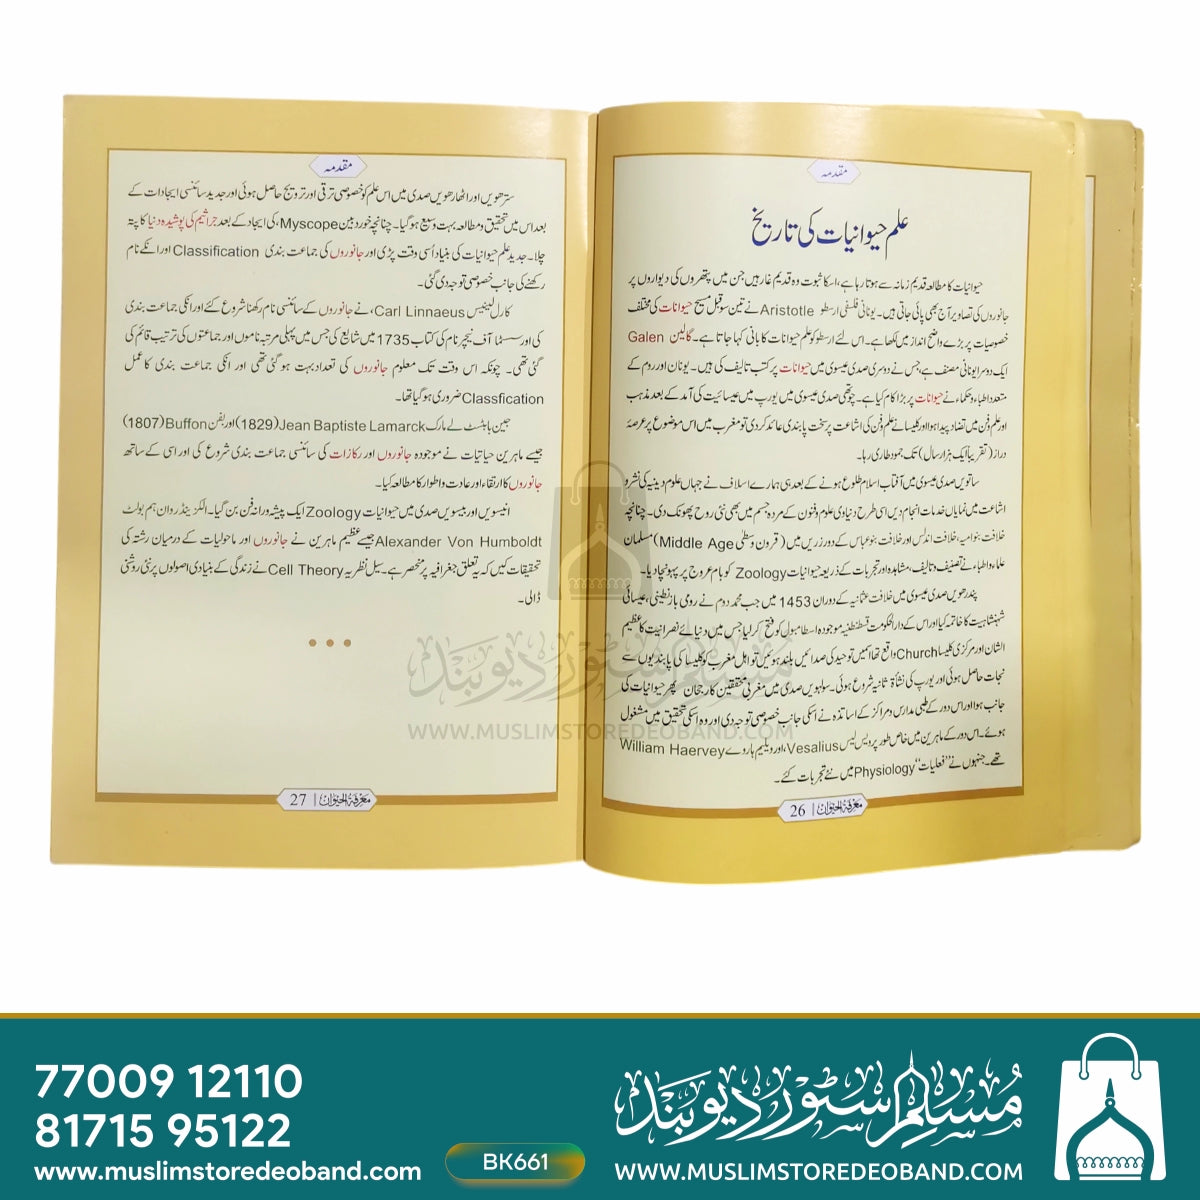 مقدمہ
علم حیوانیات کی تاریخ
حیوانیات کا مطالعہ قدیم زمانہ سے ہوتا رہا ہے، اسکا ثبوت وہ قدیم غار ہیں جن میں پتھروں کی دیواروں پر
جانوروں کی تصاویر آج بھی پائی جاتی ہیں۔ یونانی فلسفی ارسطو Aristotle نے تین سو قبل مسیح حیوانات کی مختلف
خصوصیات پر بڑے واضح انداز میں لکھا ہے۔ اس لئے ارسطو کو علم حیوانات کا بانی کہا جاتا ہے۔ گالین Galen
ایک دوسرا یونانی مصنف ہے، جس نے دوسری صدی عیسوی میں حیوانات پر کتب تالیف کی ہیں۔ یونان اور روم کے
متعدد اطباء و حکماء نے حیوانات پر بڑا کام کیا ہے۔ چوتھی صدی عیسوی میں یورپ میں عیسائیت کی آمد کے بعد مذہب
اور علم و فن میں تضاد پیدا ہوا اور کلیسا نے علم و فن کی اشاعت پر سخت پابندی عائد کر دی تو مغرب میں اس موضوع پر عرصۂ
دراز (تقریباً ایک ہزار سال) تک جمود طاری رہا۔
ساتویں صدی عیسوی میں آفتاب اسلام طلوع ہونے کے بعد ہی ہمارے اسلاف نے جہاں علوم دینیہ کی نشر و
اشاعت میں نمایاں خدمات انجام دیں اسی طرح دنیاوی علوم و فنون کے مردہ جسم میں بھی نئی روح پھونک دی۔ چنانچہ
خلافت بنو امیہ، خلافت اندلس اور خلافت بنو عباس کے دور زریں میں (قرون وسطی Middle Age) مسلمان
علماء و اطباء نے تصنیف و تالیف، مشاہدہ اور تجربات کے ذریعہ حیوانیات Zoology کو بام عروج پر پہونچا دیا۔
پندرھویں صدی عیسوی میں خلافت عثمانیہ کے دوران 1453 میں جب محمد دوم نے رومی بازنطینی، عیسائی
شہنشاہیت کا خاتمہ کیا اور اس کے دارالحکومت قسطنطنیہ موجودہ اسطامبول کو فتح کر لیا جس میں دنیائے نصرانیت کا عظیم
الشان اور مرکزی کلیسا Church واقع تھا انمیں توحید کی صدائیں بلند ہوئیں تو اہل مغرب کو کلیسا کی پابندیوں سے
نجات حاصل ہوئی اور یورپ کی نشأۃ ثانیہ شروع ہوئی۔ سولہویں صدی میں مغربی محققین کا رجحان پھر حیوانیات کی
جانب ہوا اور اس دور کے طبی مدارس و مراکز کے اساتذہ نے اسکی جانب خصوصی توجہ دی اور وہ اسکی تحقیق میں مشغول
ہوئے۔ اس دور کے ماہرین میں خاص طور پر ویس لیس Vesalius، اور ویلیم ہاروے William Haervey
تھے۔ جنہوں نے "فعلیات" Physiology میں نئے تجربات کئے۔
معرفۃ الحیوان | 26
مقدمہ
سترھویں اور اٹھارھویں صدی میں اس علم کو خصوصی ترقی اور ترویج حاصل ہوئی اور جدید سائنسی ایجادات کے
بعد اس میں تحقیق و مطالعہ بہت وسیع ہو گیا۔ چنانچہ خورد بین Myscope، کی ایجاد کے بعد جراثیم کی پوشیدہ دنیا کا پتہ
چلا۔ جدید علم حیوانیات کی بنیاد اُسی وقت پڑی اور جانوروں کی جماعت بندی Classification اور انکے نام
رکھنے کی جانب خصوصی توجہ دی گئی۔
کارل لینیس Carl Linnaeus، نے جانوروں کے سائنسی نام رکھنا شروع کئے اور انکی جماعت بندی
کی اور سسٹما آف نیچر نام کی کتاب 1735 میں شایع کی جس میں پہلی مرتبہ ناموں اور جماعتوں کی ترتیب قائم کی
گئی تھی۔ چونکہ اس وقت تک معلوم جانوروں کی تعداد بہت ہو گئی تھی اور انکی جماعت بندی کا عمل
Classfication ضروری ہو گیا تھا۔
جین باپٹسٹ لے مارک Jean Baptiste Lamarck (1829) اور بفن Buffon (1807)
جیسے ماہرین حیاتیات نے موجودہ جانوروں اور رکازات کی سائنسی جماعت بندی شروع کی اور اسی کے ساتھ
جانوروں کا ارتقاء اور عادت و اطوار کا مطالعہ کیا۔
انیسویں اور بیسویں صدی میں حیوانیات Zoology ایک پیشہ ورانہ فن بن گیا۔ الکزینڈر وان ہم بولٹ
Alexander Von Humboldt جیسے عظیم ماہرین نے جانوروں اور ماحولیات کے درمیان رشتہ کی
تحقیقات کیں کہ یہ تعلق جغرافیہ پر منحصر ہے۔ سیل نظریہ Cell Theory نے زندگی کے بنیادی اصولوں پر نئی روشنی
ڈالی۔
معرفۃ الحیوان | 27
مسلم سٹور دیوبند
WWW.MUSLIMSTOREDEOBAND.COM
77009 12110
81715 95122
www.muslimstoredeoband.com
BK661
مسلم سٹور دیوبند
WWW.MUSLIMSTOREDEOBAND.COM